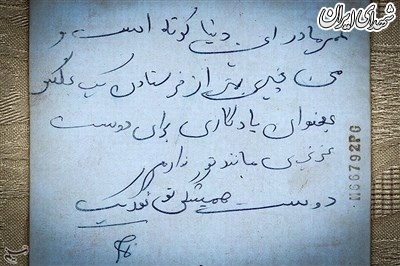 شهدای ایران
عمر ما در این دنیا کوتاه است و
من چیزی بهتر از فرستادن یک عکس
بعنوان یادگاری برای دوست
عزیزی مانند تو ندارم
دوست همیشگی تو
M66792PG